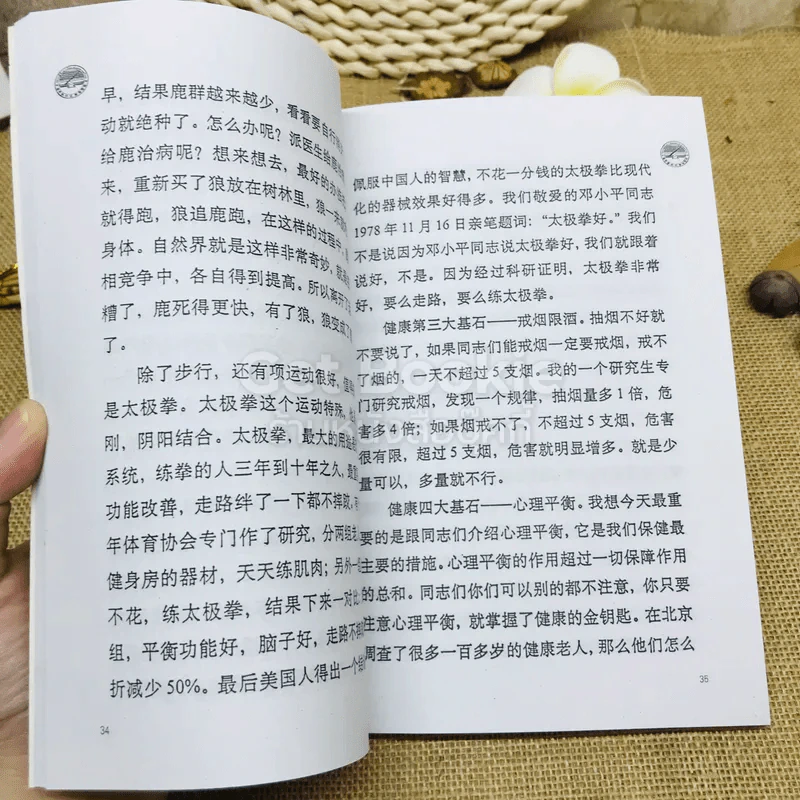 早，结果鹿群越来越少，看看要自行
动就绝种了。怎么办呢？派医生给鹿
给鹿治病呢？想来想去，最好的办
来，重新买了狼放在树林里，狼一来
就得跑，狼追鹿跑，在这样的过程中，
身体。自然界就是这样非常奇妙，
相竞争中，各自得到提高。所以离开了
糟了，鹿死得更快，有了狼，狼变成了
了。
除了步行，还有项运动很好，值
是太极拳。太极拳这个运动特殊，
刚，阴阳结合。太极拳，最大的用
系统，练拳的人三年到十年之久，最
功能改善，走路绊了一下都不摔跤，
年体育协会专门作了研究，分两组
健身房的器材，天天练肌肉；另外一
不花，练太极拳，结果下来一对比
组，平衡功能好，脑子好，走路不摔
折减少50%。最后美国人得出一个结
34
佩服中国人的智慧，不花一分钱的太极拳比现代
化的器械效果好得多。我们敬爱的邓小平同志
1978年11月16日亲笔题词：“太极拳好。”我们
不是说因为邓小平同志说太极拳好，我们就跟着
说好，不是。因为经过科研证明，太极拳非常
好，要么走路，要么练太极拳。
健康第三大基石——戒烟限酒。抽烟不好就
不要说了，如果同志们能戒烟一定要戒烟，戒不
了烟的，一天不超过5支烟。我的一个研究生专
门研究戒烟，发现一个规律，抽烟量多1倍，危
害多4倍；如果烟戒不了，不超过5支烟，危害
很有限，超过5支烟，危害就明显增多。就是少
量可以，多量就不行。
健康四大基石——心理平衡。我想今天最重
要的是跟同志们介绍心理平衡，它是我们保健最
主要的措施。心理平衡的作用超过一切保障作用
的总和。同志们你们可以别的都不注意，你只要
注意心理平衡，就掌握了健康的金钥匙。在北京
周查了很多一百多岁的健康老人，那么他们怎么
35
Get Bookie
ร้านหนังสือบุ๊คกี้